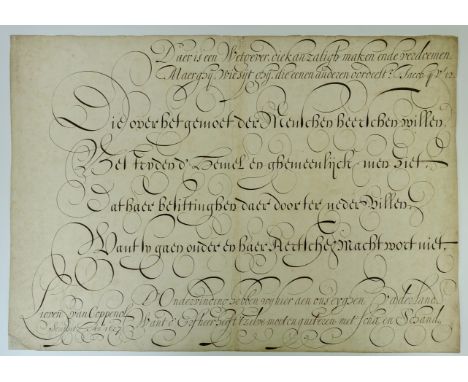 Daer is een Wetgever, die kan zaligh maken ende verdoemen.
Maer gy, wie zijt ghij, die eenen anderen oordeelt? Jacob 4. Vs 12.
Die over het gemoet der Menschen heerschen willen
Bestryden d' Hemel en ghemeenlijck men ziet.
Dat haer besittinghen daer door ter neder villen.
Want sy gaen onder en haer Aertsche Macht wort niet.
D'Ondervinding hebben wy hier aen ons eygen Vaderland.
Lieven van Coppenol
Want d'
moeten met en Schand.